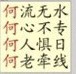 何流无水
何心不专
何人惧日
何老牵线